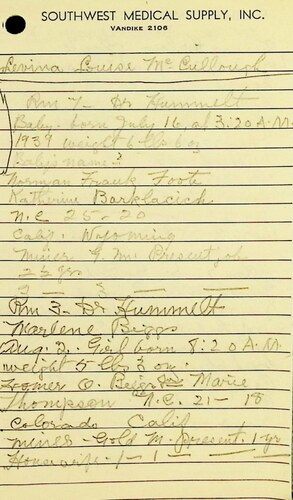 SOUTHWEST MEDICAL SUPPLY, INC.
VANDIKE 2106
Levina Louise McCullough
Rm 7 - Dr Hummelt
Baby born July 16, at 3:20 A.M.
1939 weight 6 lbs 6 oz
Baby's name?
Norman Frank Foote
Katherine Barklacich
N.C 25-20
Calif. Wyoming
Miner G. M. Present job
2½ yrs
2 — — 3 — —
Rm 3 - Dr Hummelt
Marlene Biggs
Aug. 2. Girl born 8:20 A.M.
weight 5 lbs 3 oz.
Homer O. Biggs Marie
Thompson N.C. 21-18
Colorado Calif
Mines - Gold M. present. 1 yr
Housewife - 1 - 1 — — —